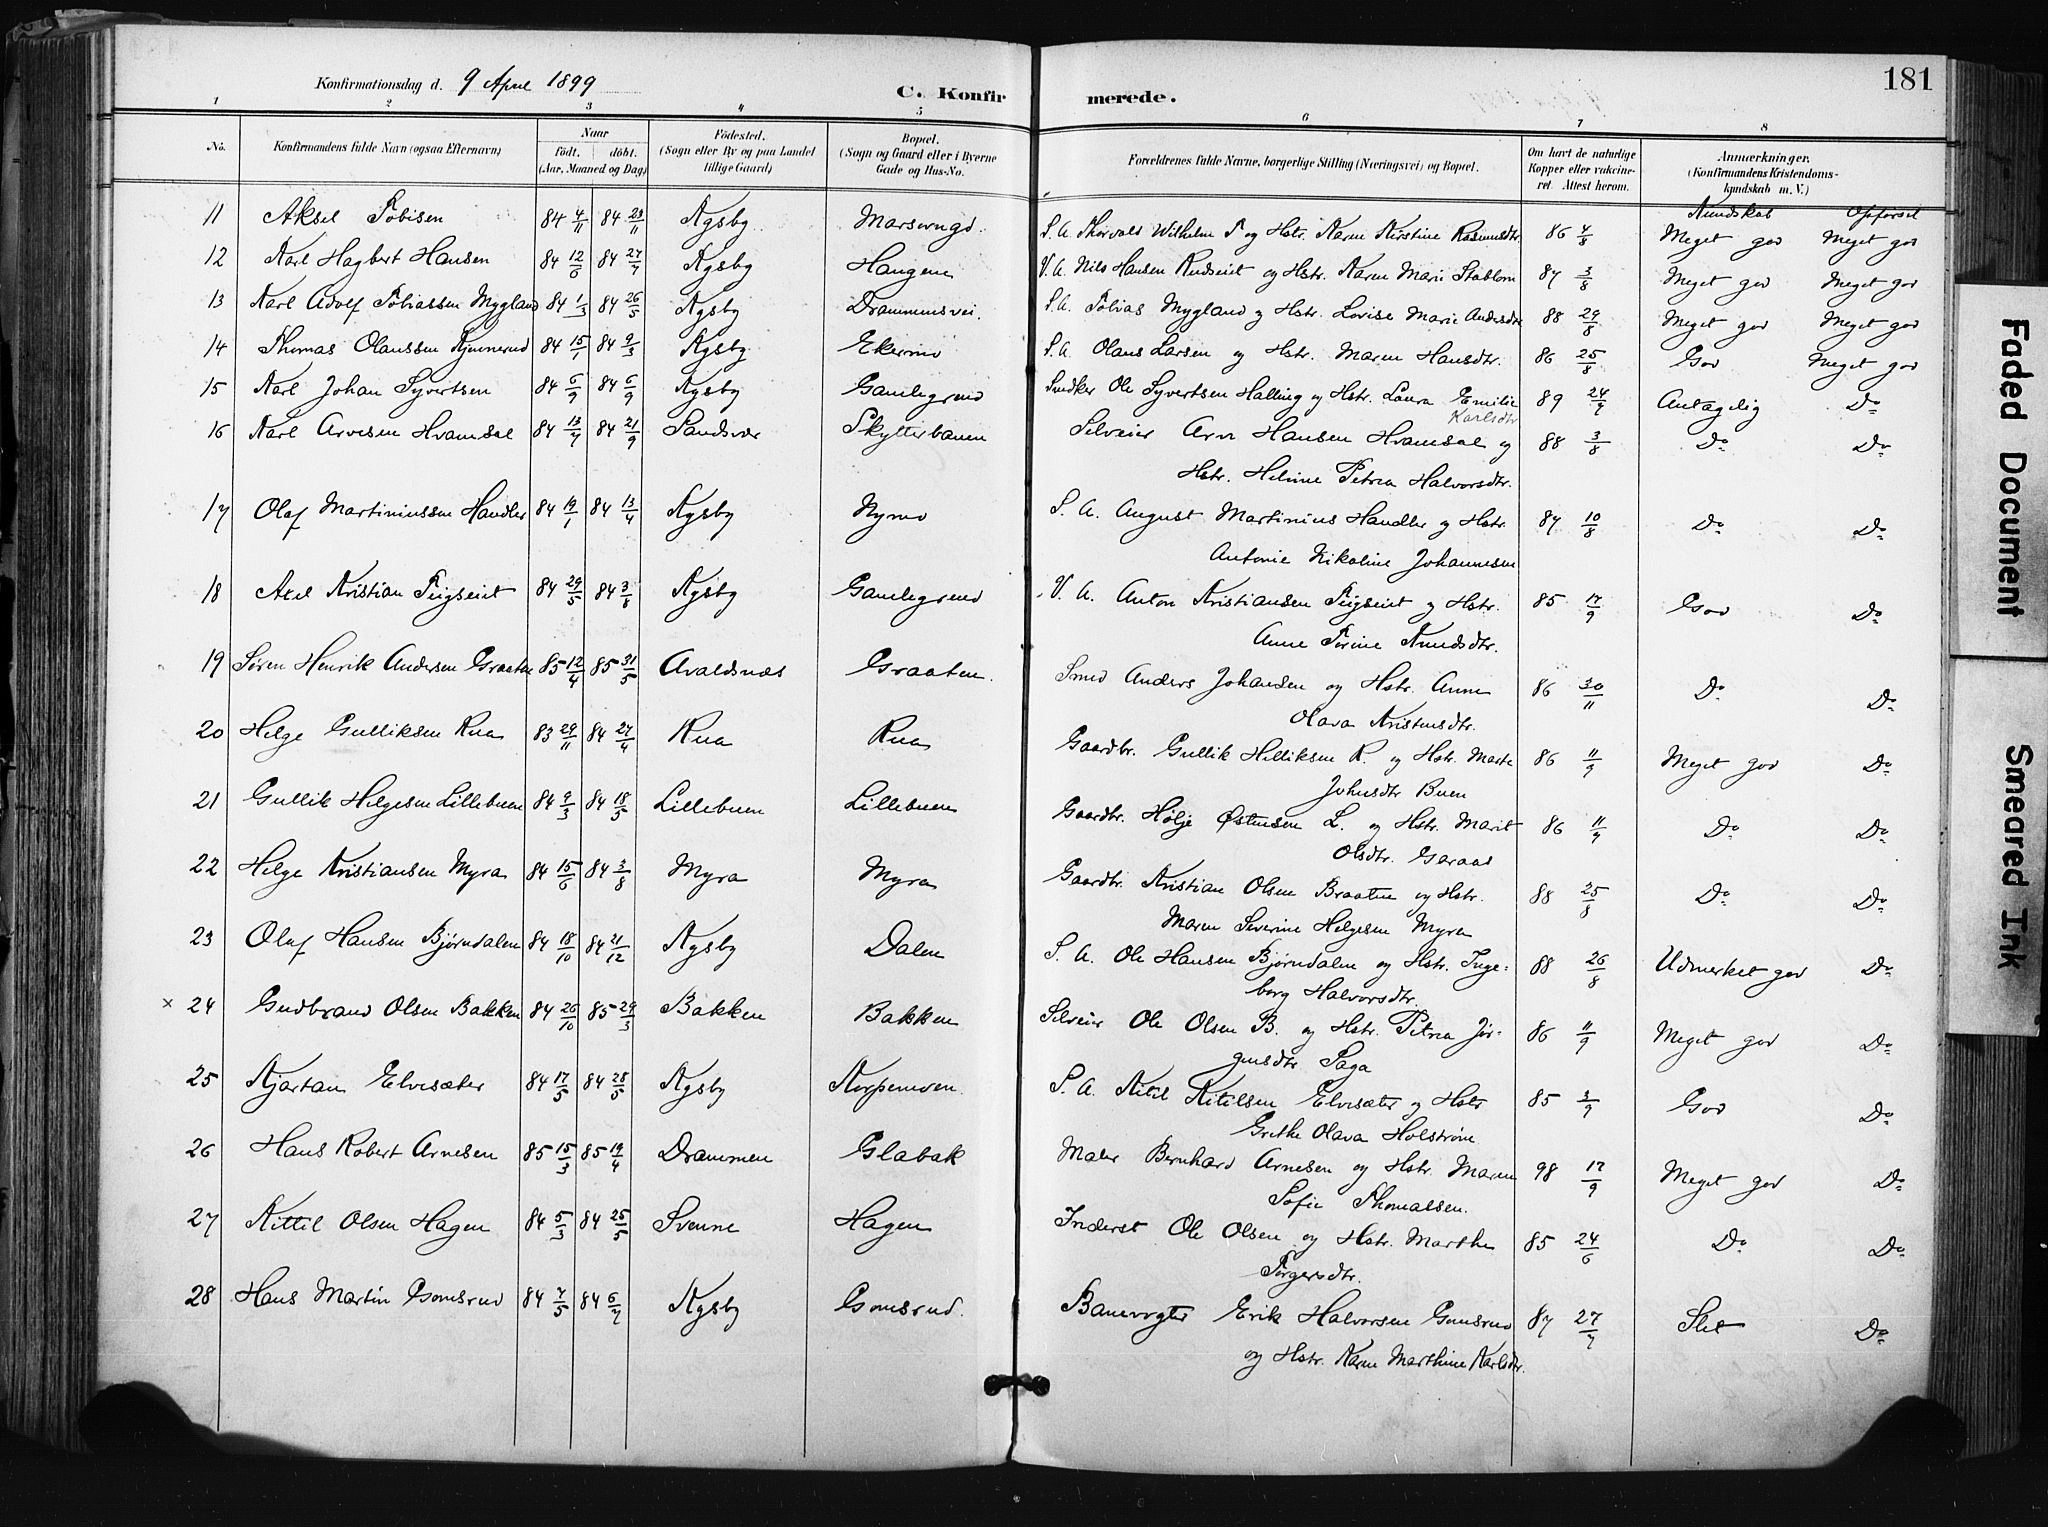 Konfirmationsdag d. 9 April 1899
C. Konfirmerede.
181
1 2 3 4 5 6 7 8
No. Konfirmandens fulde Navn (ogsaa Efternavn) Naar födt. döbt. (Aar, Maaned og Dag) Födested. (Sogn eller By og paa Landet tillige Gaard) Bopæl. (Sogn og Gaard eller i Byerne Gade og Hus-No. Forældrenes fulde Navne, borgerlige Stilling (Næringsvei) og Bopæl. Om havt de naturlige Kopper eller vakcineret. Attest herom. Anmærkninger. (Konfirmandens Kristendomskundskab m. V.)
Kundskab Opførsel
11 Aksel Tobisen 84 4/11 84 23/11 Kgsby S. A. Thorvald Wilhelm T. og Hstr. Karen Kirstine Rasmusdtr. 86 4/8 Meget god Meget god
12 Karl Hagbert Hansen 84 12/6 84 27/7 Kgsby Haugen V. A. Nils Hansen Rudseiet og Hstr. Karen Marie Stablum 87 3/8 Meget god Meget god
13 Karl Adolf Tobiassen Mygland 84 1/3 84 26/5 Kgsby Drammensvei. S. A. Tobias Mygland og Hstr. Lovise Marie Andersdtr 88 29/8 Meget god Meget god
14 Thomas Olaussen Kjennerud 84 15/1 84 9/3 Kgsby Ekermo S. A. Olaus Larsen og Hstr. Maren Hansdtr. 86 25/8 God Meget god
15 Karl Johan Syvertsen 84 6/9 84 6/9 Kgsby Gamlegrend Snedker Ole Syvertsen Halling og Hstr. Laura Emilie Karlsdtr 89 24/7 Antagelig Do
16 Karl Arvesen Hvamsal 84 13/7 84 21/9 Sandsvær Skytterbanen Selveier Arve Hansen Hvamsal og 88 3/8 Do Do
Hstr. Heline Petrea Halvorsdtr.
17 Olaf Martiniussen Handler 84 19/1 84 13/4 Kgsby Nymo S. A. August Martinius Handler og Hstr. 87 10/8 Do Do
Antonie Nikoline Johannesen
18 Axel Kristian Teigseiet 84 29/5 84 3/8 Kgsby Gamlegrend V. A. Anton Kristiansen Teigseiet og Hstr. 85 17/9 God Do
Anne Torine Knudsdtr.
19 Søren Henrik Andersen Graaten 85 12/4 85 31/5 Avaldsnæs Graaten. Smed Anders Johansen og Hstr. Anne 86 30/11 Do Do
Olava Kristensdtr.
20 Helge Gulliksen Rua 83 29/11 84 27/4 Rua Rua Gaardbr. Gullik Helliksen R. og Hstr. Marte 86 11/9 Meget god Do
Johnsdtr Buen
21 Gullik Helgesen Lillebuen 84 9/3 84 18/5 Lillebuen Lillebuen Gaardbr. Hølje Østensen L. og Hstr. Marit 86 11/9 Do Do
Olsdtr. Garaas
22 Helge Kristiansen Myra 84 15/6 84 3/8 Myra Myra Gaardbr. Kristian Olsen Braaten og Hstr. 88 25/8 Do Do
Maren Severine Helgesen Myra
23 Olaf Hansen Bjørndalen 84 18/10 84 21/12 Kgsby Dalen S. A. Ole Hansen Bjørndalen og Hstr. Inge- 88 26/8 Udmerket god Do
borg Halvorsdtr.
x 24 Gudbrand Olsen Bakken 84 26/10 85 29/3 Bakken Bakken Selveier Ole Olsen B. og Hstr. Petrea Jør- 86 11/9 Meget god Do
gensdtr Saga
25 Kjartan Elvesæter 84 17/5 84 28/5 Kgsby Korpemoen. S. A. Kitil Kitilsen Elvesæter og Hstr 85 3/9 God Do
Grethe Olava Holstrøm
26 Hans Robert Arnesen 85 15/3 85 19/4 Drammen Glabak Maler Bernhard Arnesen og Hstr. Maren 98 17/9 Meget god Do
Sofie Thomassen.
27 Kittil Olsen Hagen 84 5/3 84 25/5 Svenne Hagen Inderst Ole Olsen og Hstr. Marthe 85 24/6 Do Do
Torgersdtr.
28 Hans Martin Gomsrud 84 7/5 84 6/7 Kgsby Gomsrud. Banevogter Erik Halvorsen Gomsrud 87 27/7 Slet Do
og Hstr. Karen Marthine Karlsdtr.
Faded Document
Smeared Ink